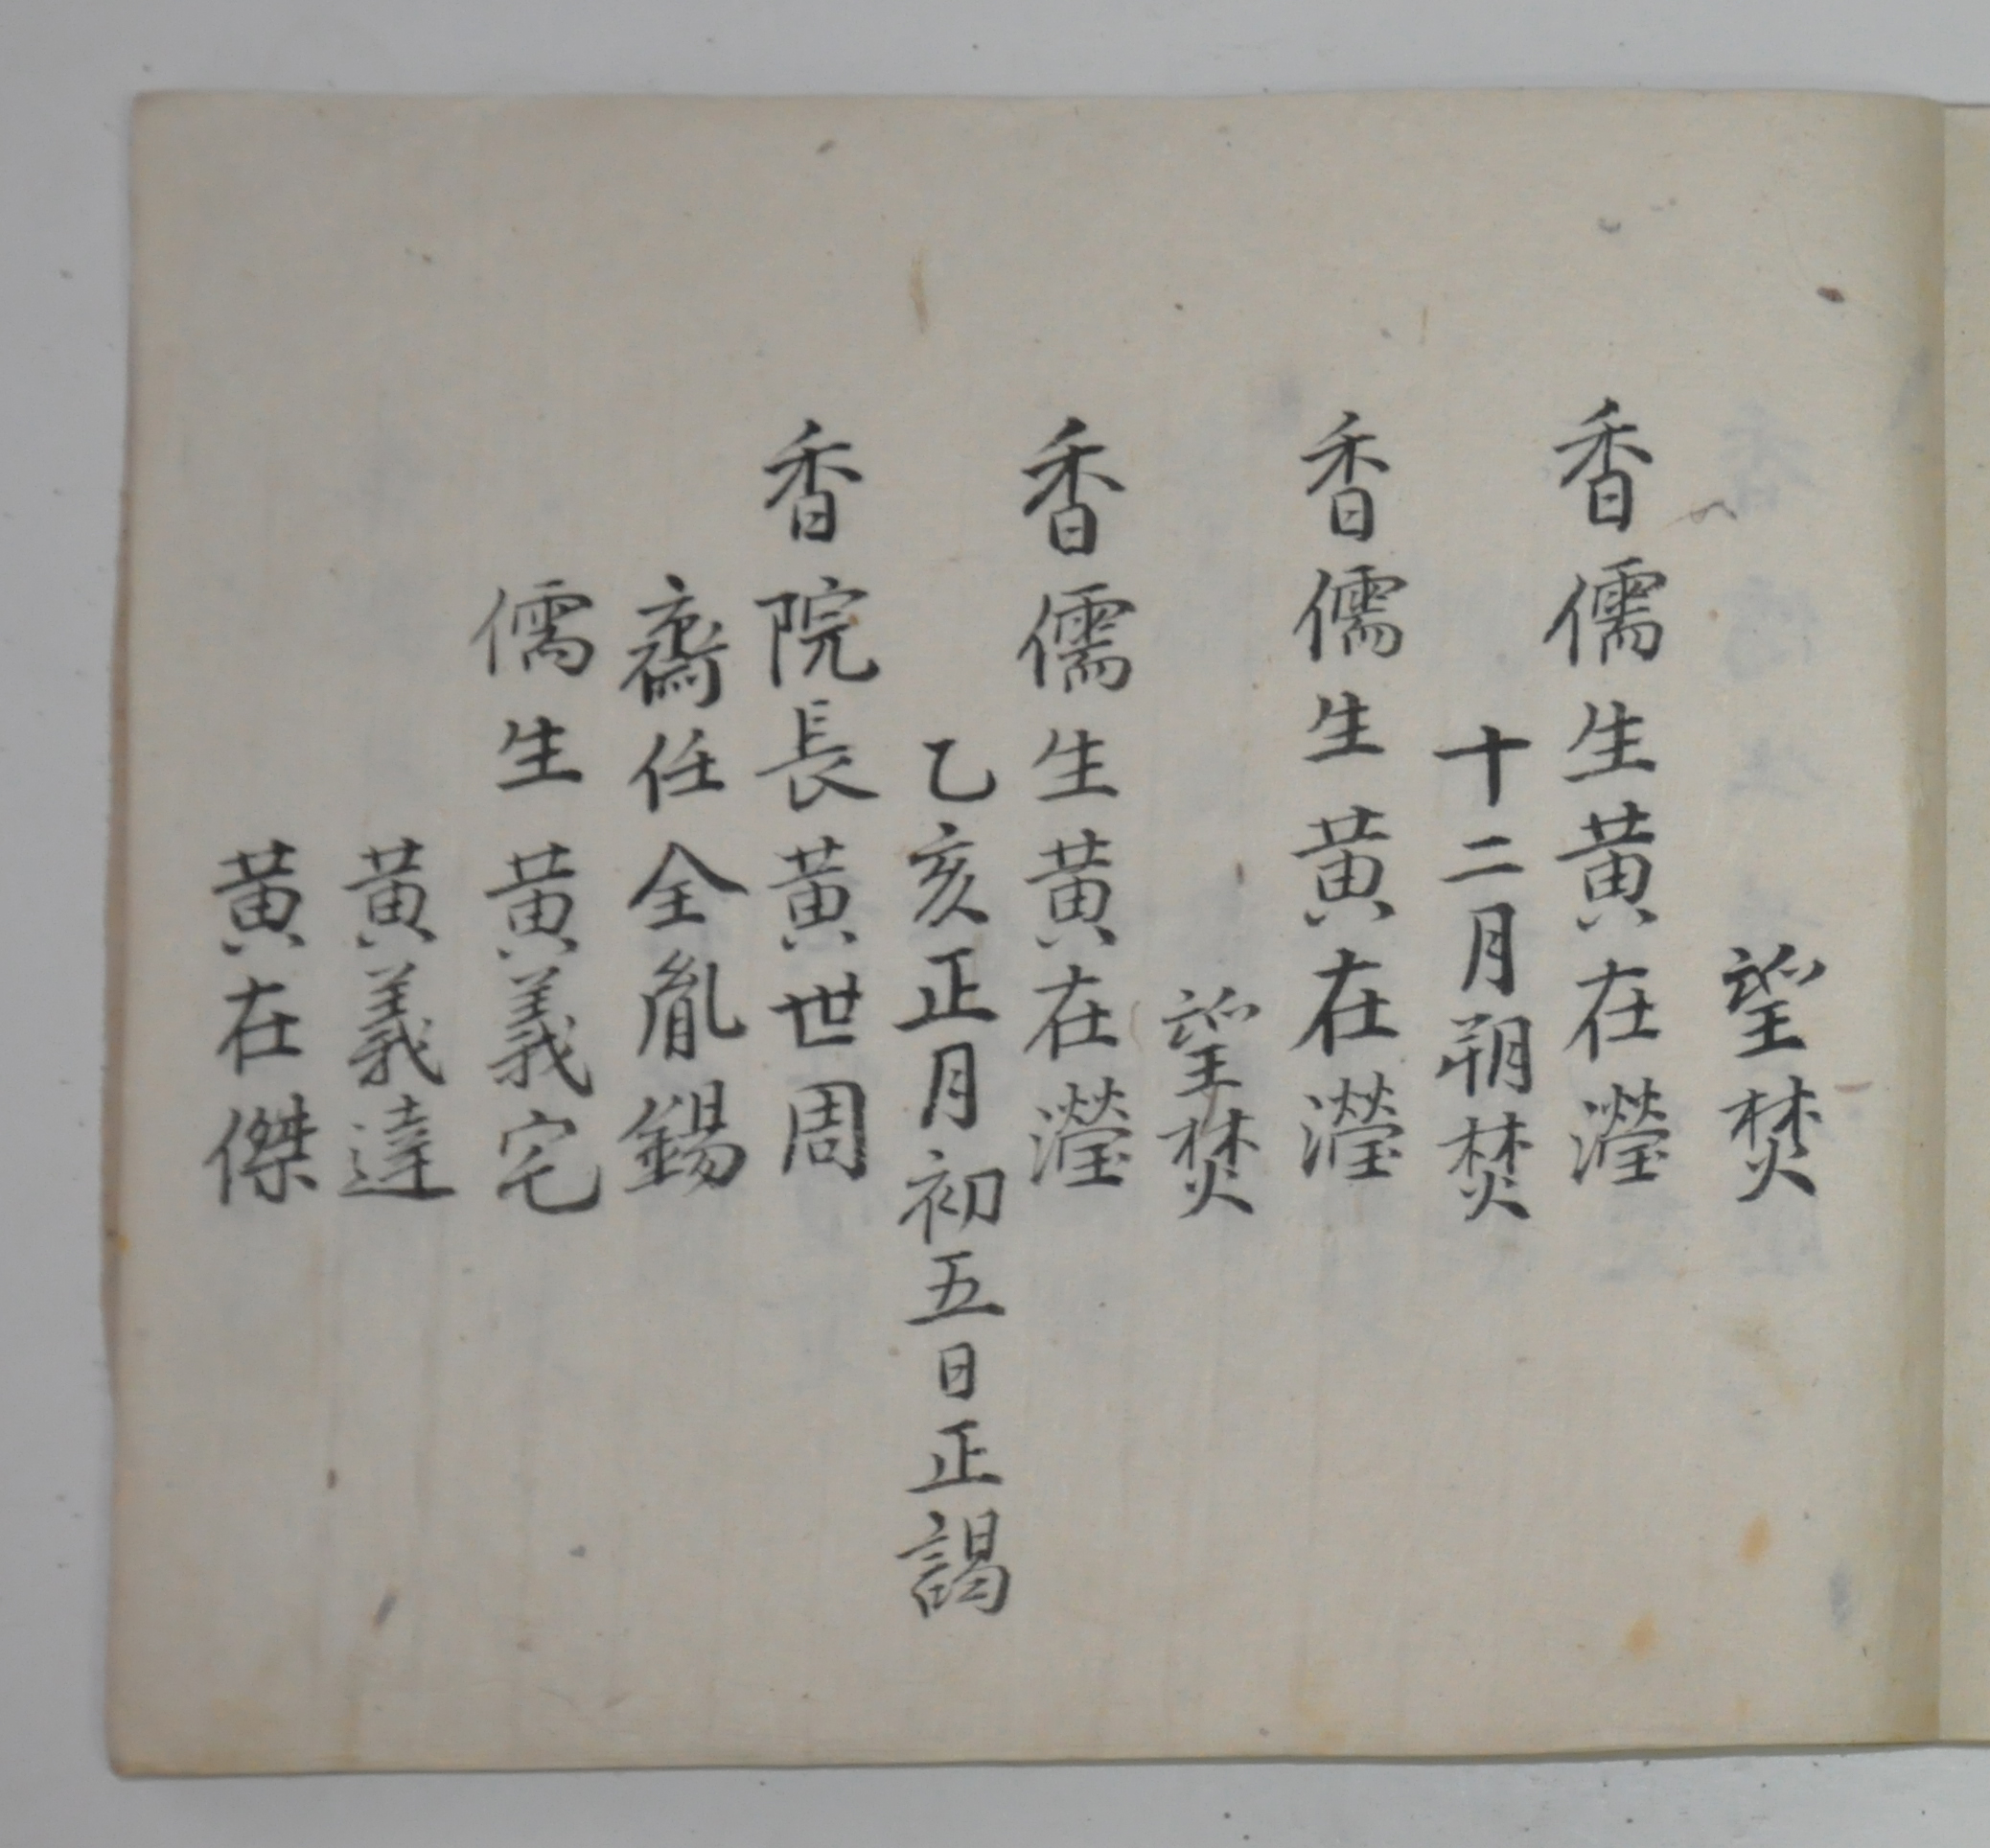 望焚
香儒生黄在瀅
十二月朔焚
香儒生黄在瀅
望焚
香儒生黄在瀅
乙亥正月初五日正謁
香院長黄世周
齋任全胤錫
儒生黄義宅
黄義達
黄在傑